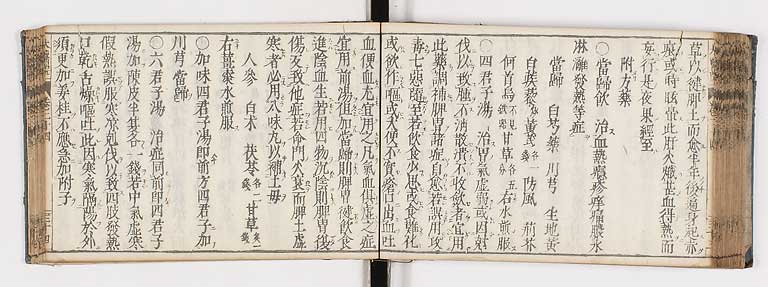 草以健脾土而愈半年後遍身起赤
痕或時眩暈此肝火熾甚血得熱而
妄行是夜果經至
附方藥
○當歸飲 治血熱癮疹痒痛膿水
淋漓發熱等症
當歸 白芍藥 川芎 生地黃
白蒺藜 黃芪 防風 荊芥
何首烏 不見 甘草 各五 右水煎服
○四君子湯 治胃氣虛弱或因剋
伐以致腫不消散潰不收斂者宜用
此藥調補脾胃諸症自愈若誤用攻
毒七惡隨至若飲食少思或食難化
或欲作嘔或大便不實瘡口出血吐
血便血尤宜用之凡氣血俱虛之症
宜用前湯但加當歸則脾胃健飲食
進陰血生若用四物沉陰則脾胃復
傷反致他症若命門火衰而脾土虛
寒者必用八味丸以補土毋
人參 白朮 茯苓 各二錢 甘草 炙一錢
右薑棗水煎服
○加味四君子湯即前方四君子加
川芎當歸
○六君子湯 治症同前即四君子
湯加陳皮半夏各一錢若中氣虛寒
假熱誤服寒凉剋伐以致四肢發熱
口乾舌燥嘔吐此因寒氣隔陽於外
須更加姜桂不應急加附子